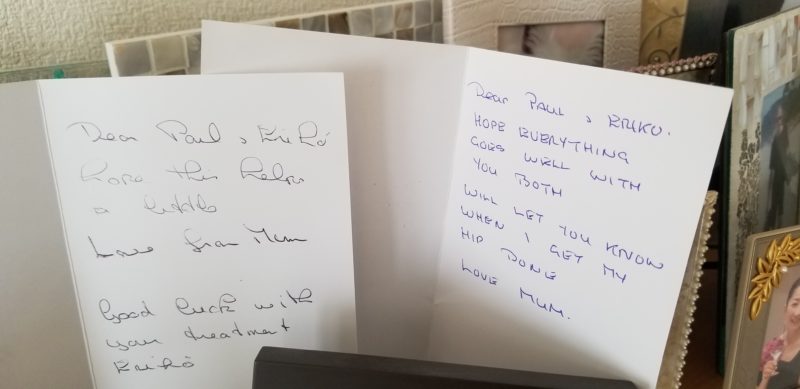 Dear Paul & Eriko
hope this helps
a little
Love from Mum
Good luck with
your treatment
Eriko
Dear PAUL & ERIKO.
HOPE EVERYTHING
GOES WELL WITH
YOU BOTH
WILL LET YOU KNOW
WHEN I GET MY
HIP DONE
LOVE MUM.